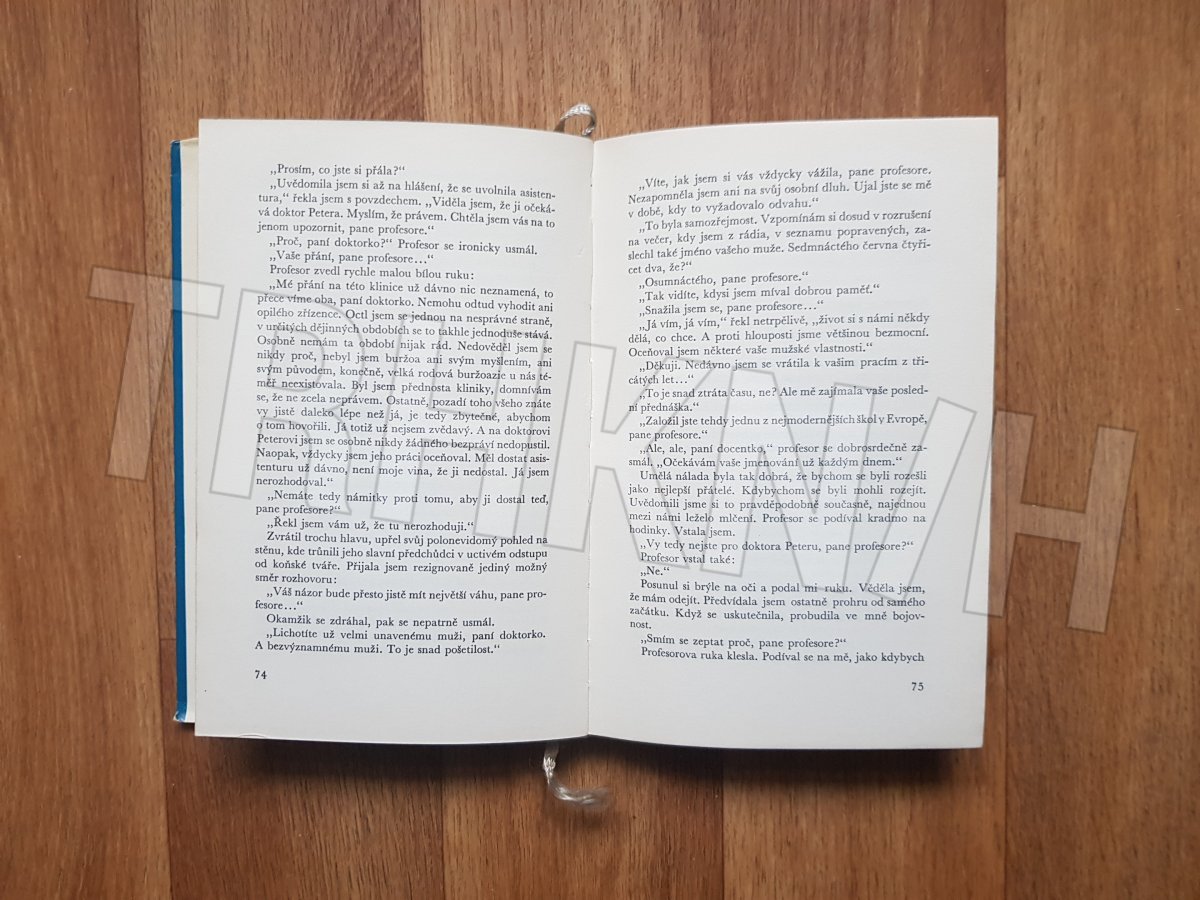 „Prosím, co jste si přála?“
„Uvědomila jsem si až na hlášení, že se uvolnila asisten-
tura,“ řekla jsem s povzdechem. „Viděla jsem, že ji očeká-
vá doktor Petera. Myslím, že právem. Chtěla jsem vás na to
jenom upozornit, pane profesore.“
„Proč, paní doktorko?“ Profesor se ironicky usmál.
„Vaše přání, pane profesore...“
Profesor zvedl rychle malou bílou ruku:
„Mé přání na této klinice už dávno nic neznamená, to
přece víme oba, paní doktorko. Nemohu odtud vyhodit ani
opilého zřízence. Octl jsem se jednou na nesprávné straně,
v určitých dějinných obdobích se to takhle jednoduše stává.
Osobně nemám ta období nijak rád. Nedověděl jsem se
nikdy proč, nebyl jsem buržoa ani svým myšlením, ani
svým původem, konečně, velká rodová buržoazie u nás té-
měř neexistovala. Byl jsem přednosta kliniky, domnívám
se, že ne zcela neprávem. Ostatně, pozadí toho všeho znáte
vy jistě daleko lépe než já, je tedy zbytečné, abychom
o tom hovořili. Já totiž už nejsem zvědavý. A na doktorovi
Peterovi jsem se osobně nikdy žádného bezpráví nedopustil.
Naopak, vždycky jsem jeho práci oceňoval. Měl dostat asis-
tenturu už dávno, není moje vina, že ji nedostal. Já jsem
nerozhodoval.“
„Nemáte tedy námitky proti tomu, aby ji dostal teď,
pane profesore?“
„Řekl jsem vám už, že tu nerozhoduji.“
Zvrátil trochu hlavu, upřel svůj polonevidomý pohled na
stěnu, kde trůnili jeho slavní předchůdci v uctivém odstupu
od koňské tváře. Přijala jsem rezignovaně jediný možný
směr rozhovoru:
„Váš názor bude přesto jistě mít největší váhu, pane pro-
fesore...“
Okamžik se zdráhal, pak se nepatrně usmál.
„Lichotíte už velmi unavenému muži, paní doktorko.
A bezvýznamnému muži. To je snad pošetilost.“
74
„Víte, jak jsem si vás vždycky vážila, pane profesore.
Nezapomněla jsem ani na svůj osobní dluh. Ujal jste se mě
v době, kdy to vyžadovalo odvahu.“
„To byla samozřejmost. Vzpomínám si dosud v rozrušení
na večer, kdy jsem z rádia, v seznamu popravených, za-
slechl také jméno vašeho muže. Sedmnáctého června čtyři-
cet dva, že?“
„Osumnáctého, pane profesore.“
„Tak vidíte, kdysi jsem míval dobrou paměť.“
„Snažila jsem se, pane profesore...“
„Já vím, já vím,“ řekl netrpělivě, „život si s námi někdy
dělá, co chce. A proti hlouposti jsme většinou bezmocní.
Oceňoval jsem některé vaše mužské vlastnosti.“
„Děkuji. Nedávno jsem se vrátila k vašim pracím z tři-
cátých let...“
„To je snad ztráta času, ne? Ale mě zajímala vaše posled-
ní přednáška.“
„Založil jste tehdy jednu z nejmodernějších škol v Evropě,
pane profesore.“
„Ale, ale, paní docentko,“ profesor se dobrosrdečně za-
smál. „Očekávám vaše jmenování už každým dnem.“
Umělá nálada byla tak dobrá, že bychom se byli rozešli
jako nejlepší přátelé. Kdybychom se byli mohli rozejít.
Uvědomili jsme si to pravděpodobně současně, najednou
mezi námi leželo mlčení. Profesor se podíval kradmo na
hodinky. Vstala jsem.
„Vy tedy nejste pro doktora Peteru, pane profesore?“
Profesor vstal také:
„Ne.“
Posunul si brýle na oči a podal mi ruku. Věděla jsem,
že mám odejít. Předvídala jsem ostatně prohru od samého
začátku. Když se uskutečnila, probudila ve mně bojov-
nost.
„Smím se zeptat proč, pane profesore?“
Profesorova ruka klesla. Podíval se na mě, jako kdybych
75
TRHKNIH